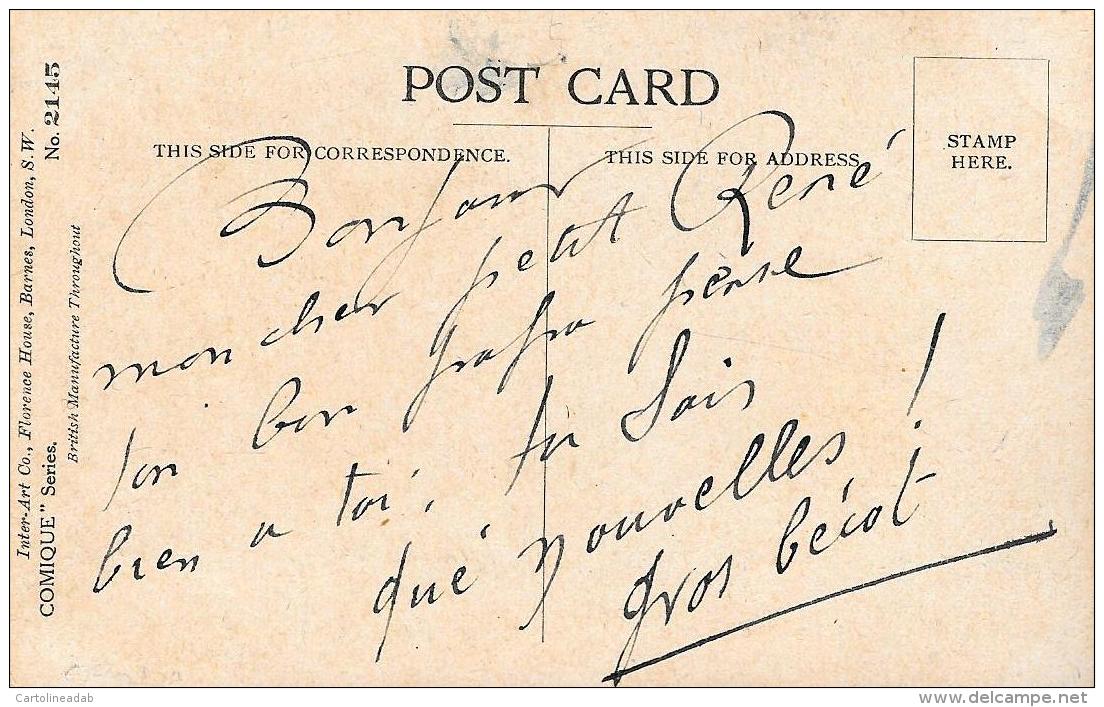 POST CARD
THIS SIDE FOR CORRESPONDENCE.
THIS SIDE FOR ADDRESS.
STAMP
HERE.
Inter-Art Co., Florence House, Barnes, London, S.W.
COMIQUE" Series.
No. 2145
British Manufacture Throughout
Bonjour
mon cher petit René
ton bon papa pense
bien a toi, tu sais
qué nouvelles!
gros bécot
Cartolineadab
www.delcampe.net